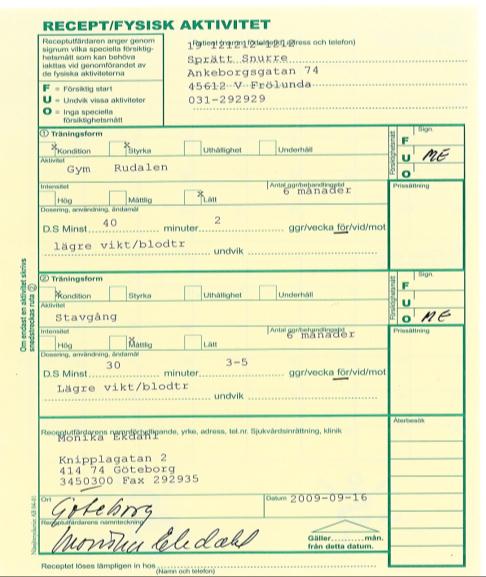 RECEPT/FYSISK AKTIVITET
Receptutfärdaren anger genom
signum vilka speciella försiktig-
hetsmått som kan behöva
iakttas vid genomförandet av
de fysiska aktiviteterna
F = Försiktig start
U = Undvik vissa aktiviteter
O = Inga speciella
försiktighetsmått
19 121212-1212
Sprätt Snurre
Ankeborgsgatan 74
45612 V Frölunda
031-292929
① Träningsform
x Kondition x Styrka Uthållighet Underhåll
Försiktighetsmått
F U O
Sign.
ME
Aktivitet
Gym Rudalen
Intensitet
Hög Måttlig x Lätt
Antal ggr/behandlingstid
6 månader
Prissättning
Dosering, användning, ändamål
D.S Minst 40 minuter 2 ggr/vecka för/vid/mot
lägre vikt/blodtr undvik
Om endast en aktivitet skrivs
snedstreckas ruta ②
② Träningsform
x Kondition Styrka Uthållighet Underhåll
Försiktighetsmått
F U O
Sign.
ME
Aktivitet
Stavgång
Intensitet
Hög x Måttlig Lätt
Antal ggr/behandlingstid
6 månader
Prissättning
Dosering, användning, ändamål
D.S Minst 30 minuter 3-5 ggr/vecka för/vid/mot
Lägre vikt/blodtr
undvik
Receptutfärdarens namnförtydligande, yrke, adress, tel.nr. Sjukvårdsinrättning, klinik
Monika Ekdahl
Knipplagatan 2
414 74 Göteborg
3450300 Fax 292935
Återbesök
Ort
Göteborg
Datum 2009-09-16
Receptutfärdarens namnteckning
Monika Ekdahl
Gäller mån.
från detta datum.
Receptet löses lämpligen in hos
(Namn och telefon)